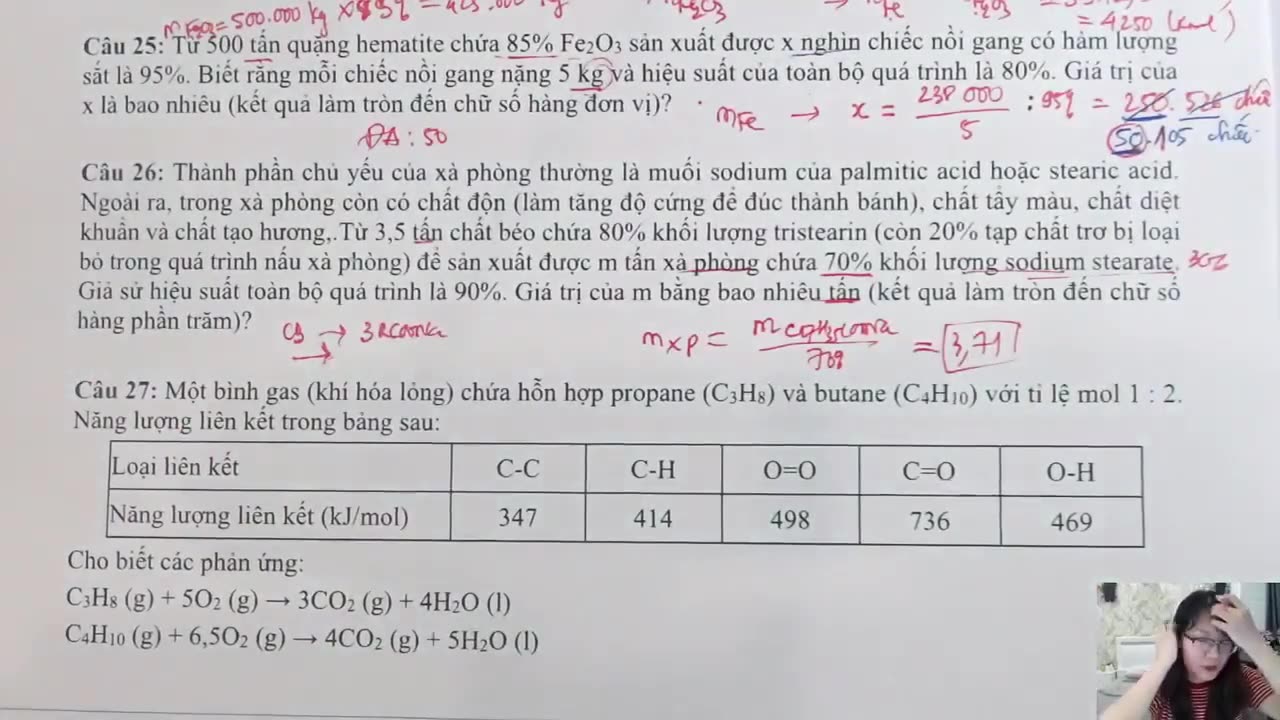 mFe2O3 = 500.000 kg × 85%
= 4250 (kmol)
Câu 25: Từ 500 tấn quặng hematite chứa 85% Fe2O3 sản xuất được x nghìn chiếc nồi gang có hàm lượng
sắt là 95%. Biết rằng mỗi chiếc nồi gang nặng 5 kg và hiệu suất của toàn bộ quá trình là 80%. Giá trị của
x là bao nhiêu (kết quả làm tròn đến chữ số hàng đơn vị)?
mFe → x = 238 000 / 5 : 95% = 250.526 chiếc
ĐA: 50
50.105 chiếc
Câu 26: Thành phần chủ yếu của xà phòng thường là muối sodium của palmitic acid hoặc stearic acid.
Ngoài ra, trong xà phòng còn có chất độn (làm tăng độ cứng để đúc thành bánh), chất tẩy màu, chất diệt
khuẩn và chất tạo hương,.Từ 3,5 tấn chất béo chứa 80% khối lượng tristearin (còn 20% tạp chất trơ bị loại
bỏ trong quá trình nấu xà phòng) để sản xuất được m tấn xà phòng chứa 70% khối lượng sodium stearate. 30%
Giả sử hiệu suất toàn bộ quá trình là 90%. Giá trị của m bằng bao nhiêu tấn (kết quả làm tròn đến chữ số
hàng phần trăm)?
CB → 3RCOONa
mxp = mC17H35COONa / 70% = 3,71
Câu 27: Một bình gas (khí hóa lỏng) chứa hỗn hợp propane (C3H8) và butane (C4H10) với tỉ lệ mol 1 : 2.
Năng lượng liên kết trong bảng sau:
Loại liên kết C-C C-H O=O C=O O-H
Năng lượng liên kết (kJ/mol) 347 414 498 736 469
Cho biết các phản ứng:
C3H8 (g) + 5O2 (g) → 3CO2 (g) + 4H2O (l)
C4H10 (g) + 6,5O2 (g) → 4CO2 (g) + 5H2O (l)